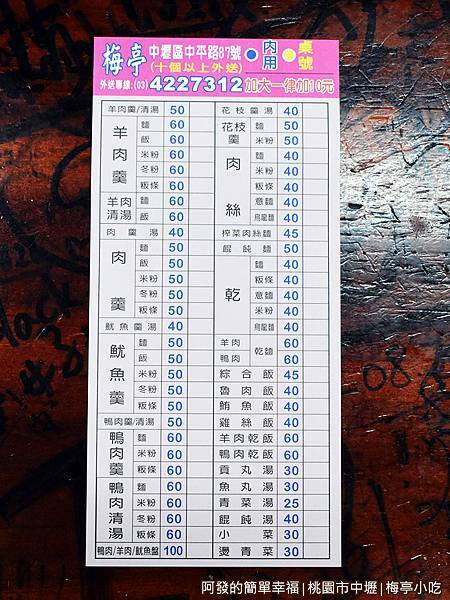 梅亭 中壢區中平路87號 內用 桌號
(十個以上外送)
外送專線:(03)4227312 加大一律加10元
羊肉羹/清湯 50
羊肉羹 麵 60
飯 60
米粉 60
冬粉 60
粄條 60
羊肉清湯 麵 60
飯 60
肉羹湯 40
肉羹 麵 50
飯 50
米粉 50
冬粉 50
粄條 50
魷魚羹湯 40
魷魚羹 麵 50
飯 50
米粉 50
冬粉 50
粄條 50
鴨肉羹/清湯 50
鴨肉羹 麵 60
米粉 60
粄條 60
鴨肉清湯 麵 60
米粉 60
冬粉 60
粄條 60
鴨肉/羊肉/魷魚盤 100
花枝羹湯 40
花枝羹 麵 50
米粉 50
肉絲 麵 40
米粉 40
粄條 40
意麵 40
烏龍麵 40
榨菜肉絲麵 45
餛飩麵 50
乾 麵 40
米粉 40
意麵 40
粄條 40
烏龍麵 40
羊肉 乾麵 60
鴨肉 60
綜合飯 45
魯肉飯 40
鮪魚飯 40
雞絲飯 40
羊肉乾飯 60
鴨肉乾飯 60
貢丸湯 30
魚丸湯 30
青菜湯 25
餛飩湯 40
小菜 30
燙青菜 30
阿發的簡單幸福|桃園市中壢|梅亭小吃